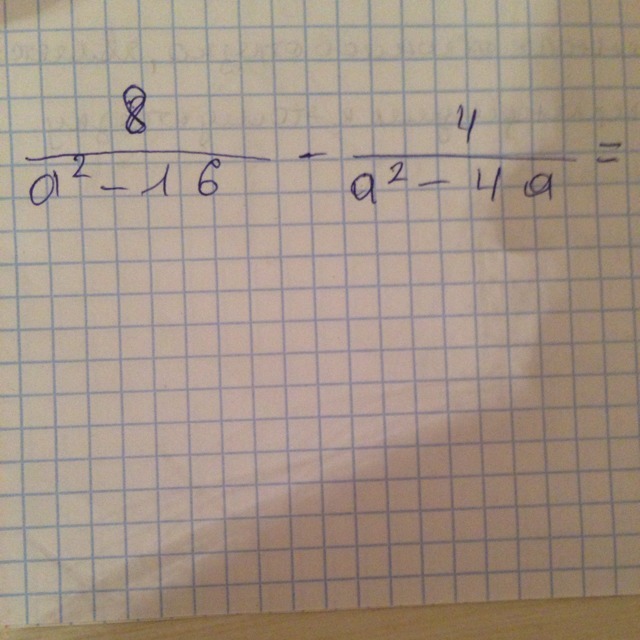 8/(a² - 16) - 4/(a² - 4a) =